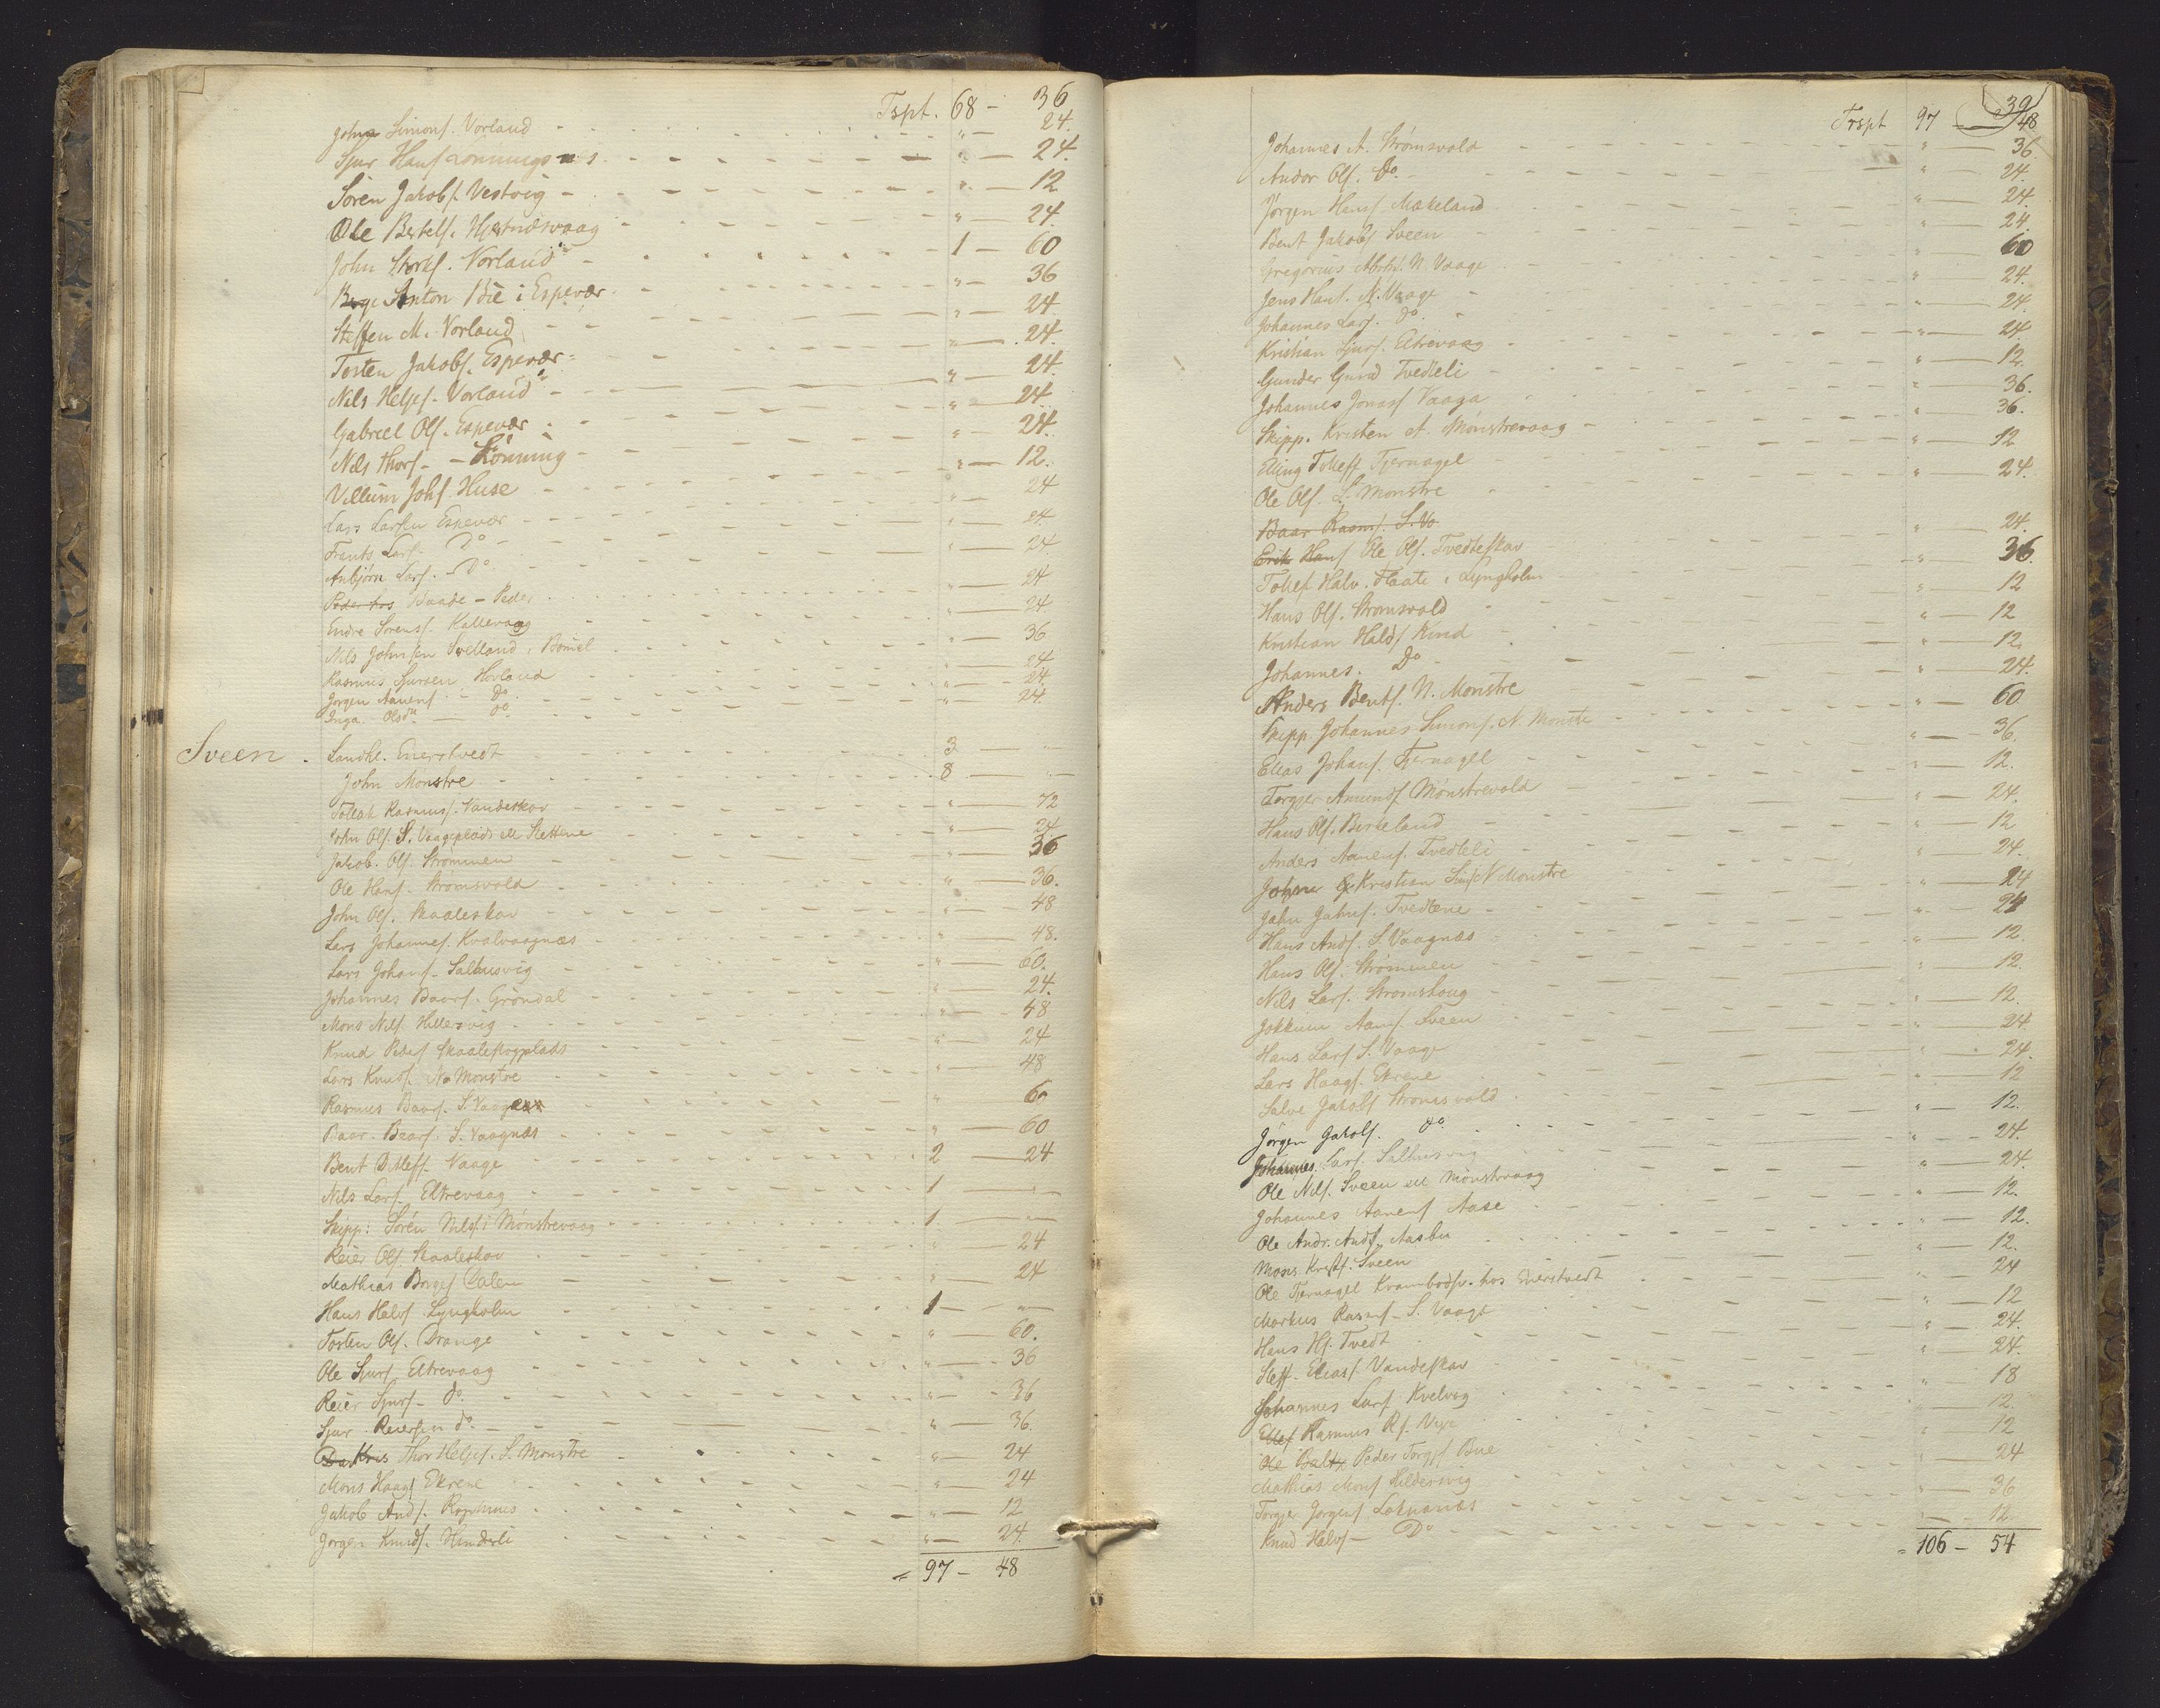 Tspt. 68 - 36
John Simons. Vorland " - 24.
Sjur Hans. " - 24.
Sören Jakobs. Vestvig - " - 12
Ole Bertels. " - 24.
John Vorland 1 - 60
Anton Bie i Espevær " - 36
Steffen M. Vorland " - 24.
Torsten Jakobs. Espevær " - 24.
Nils Helges. Vorland " - 24.
Gabriel Ols. Espevær " - 24.
Nils Thors. - Könning - " - 24.
Villum Johs. Huse " - 12.
Lars Larsen Espevær " - 24
Frants Lars. Do " - 24.
Anbjörn Lars. - Do " - 24.
Baade - Peder " - 24
Endre Sörens. Kallevaag " - 24.
Nils Johnsen i Bömel " - 36
Rasmus Sjursen Hovland " - 24
Jörgen Aanens. - Do " - 24.
Inga Olsdr. — Do. " - 24.
Sveen.
Landhl. Enerstvedt 3 — "
John Monstre 8 — "
Tollak Rasmuss. Vandeskov " - 72
John Ols. S. Vaageplads ell Slettene " - 24.
Jakob Ols. Strömmen " - 36
Ole Hans. Strömsvold " - 36.
John Ols. Skaaleskov " - 48
Lars Johannes. Kvalvaagnæs " - 48.
Lars Johans. Salhusvig " - 60.
Johannes Baars. Gröndal " - 24.
Mons Nils. Hillesvig " - 48
Knud Peders. Skaaleskogplads " - 24
Lars Knuds. N. Monstre " - 48
Rasmus Baars. S. Vaage " - 60
Baar Baars. S. Vaagnæs " - 60
Bent Ditlefs. Vaage 2 - 24
Nils Lars. Eltrevaag 1 — "
Skipp: Sören Nils. i Mönstrevaag 1 — "
Reier Ols. Skaaleskov " - 24
Mathias Börges. " - 24
Hans Halvs. Lyngholm 1 — "
Torsten Ols. Drange " - 60.
Ole Sjurs. Eltrevaag " - 36
Reier Sjurs. - do " - 36
Sjur Reiersen do. " - 36.
Thor Helges. S. Monstre " - 24
Mons Haags. Ekrene " - 24
Jakob Ands. " - 12
Jörgen Knuds. Hinderli " - 24.
= 97 - 48
39
Trspt 97 — 48
Johannes A. Strömsvold " - 36.
Andor Ols. Do. " - 24.
Jörgen Hans. Mækeland " - 24.
Bent Jakobs. Sveen " - 24.
Gregorius N. Vaage " - 60
Jens Hans. N. Vaage " - 24.
Johannes Lars. do. " - 24.
Kristian Sjurs. Eltrevaag " - 24.
Gunder Tvedteli " - 12.
Johannes Jonas. Vaaga " - 36.
Skipp. Kristen A. Mönstrevaag " - 36.
Elling Tollefs. Tjernagel " - 12
Ole Ols. S. Monstre " - 24.
Baar Rasms. S. Vo
Erik Hans Ole Ols. Tvedteskov " - 24.
Tollef Halv. Flaate i Lyngholm " - 36.
Hans Ols. Strömsvold " - 12
Kristian Halds. Kind " - 12
Johannes. Do " - 12.
Anders Bents. N. Monstre " - 24.
Skipp Johannes Simons. N. Monstre " - 60
Elias Johans. Tjernagel " - 36.
Torgjer Amunds. Mönstrevold " - 12.
Hans Ols. Birkeland " - 24.
Anders Aanens. Tvedteli " - 12
Kristian N Monstre " - 24.
John Johns. Tvedtene " - 24
Hans Ands. S. Vaagnæs " - 24
Hans Ols. Strömmen " - 12.
Nils Lars. Strömshoug " - 12.
Jokkum Aans. Sveen " - 12.
Hans Lars. S. Vaage " - 24.
Lars Haags. Ekrene " - 24.
Salve Jakobs. Strömsvold " - 12
Jörgen Jakobs. do. " - 12.
Johannes. Lars. Salhusvig " - 24.
Ole Nils. Sveen ell Mönstrvaag " - 24.
Johannes Aanens. Aase " - 12.
Ole Andr. Ands. Aasbu " - 12.
Mons Krists. Sveen " - 12.
Ole Tjernagel Krambodsv. hos Enerstvedt " - 24
Markus Rasms. S. Vaage " - 12
Hans Hs. Tvedt " - 24.
Steff. Elias. Vandeskav " - 24.
Johannes Lars. Kvelvog " - 18
Rasmus Rs. " - 12.
Peder Torgjs. Bue " - 12
Mathias Mons. Hildersvig " - 24
Torgjer Jörgens. Loknanæs " - 36
Knud Halvs. - Do " - 12.
= 106 - 54